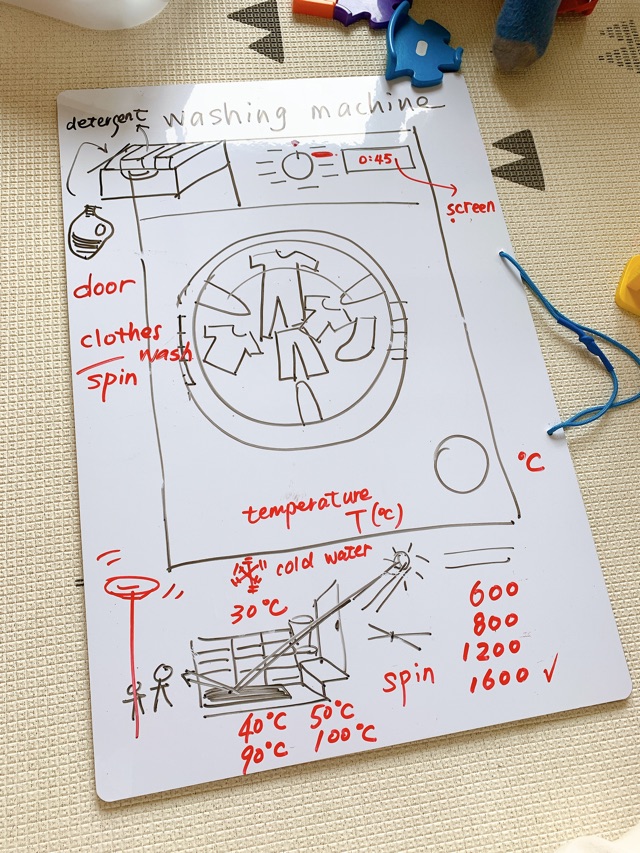 washing machine
detergent
0:45
screen
door
clothes
wash
spin
°C
temperature
T(°C)
cold water
30°C
40°C 50°C
90°C 100°C
spin
600
800
1200
1600 ✓